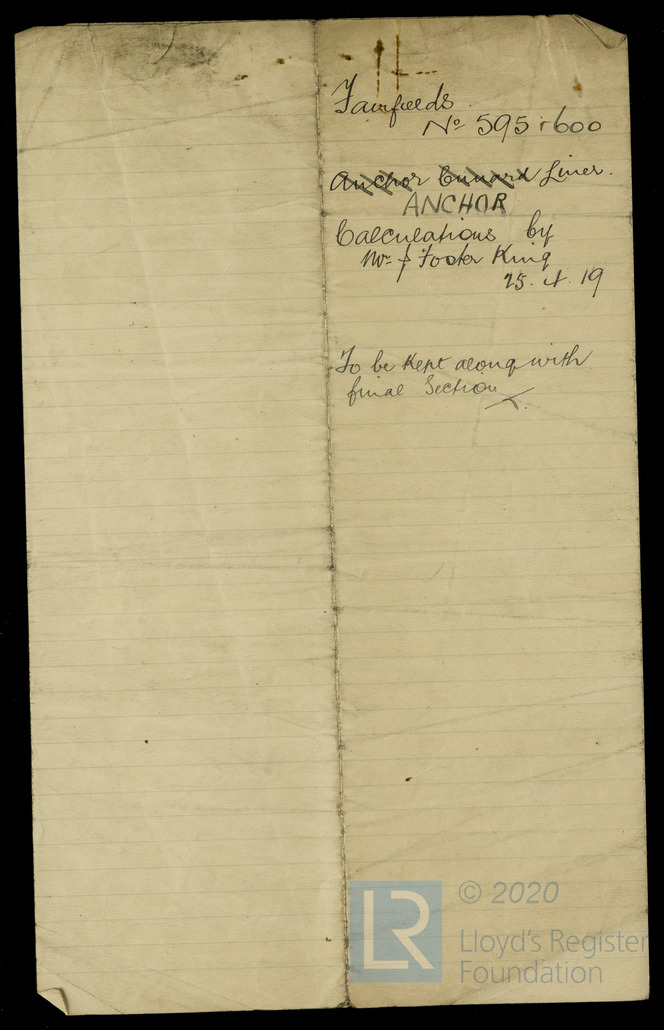 Fairfields
No 595 & 600
Anchor Cunard Liner.
ANCHOR
Calculations by
Mr J Foster King
25. 4. 19
To be kept along with
final Section
© 2020
LR
Lloyd's Register
Foundation